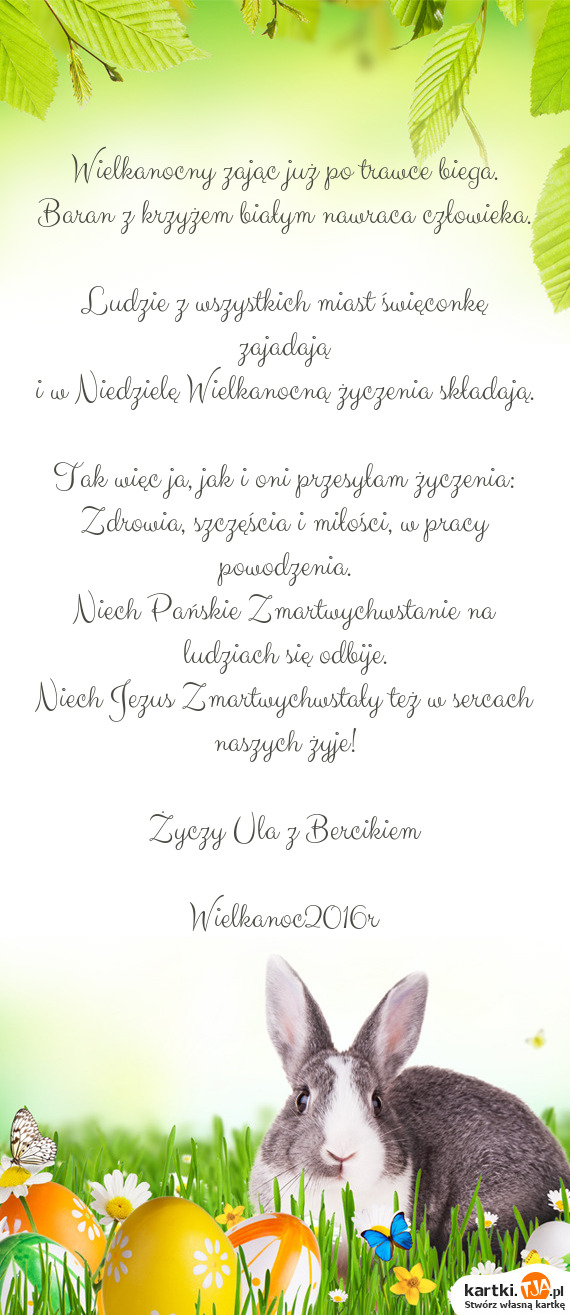 Wielkanocny zając już po trawce biega.
Baran z krzyżem białym nawraca człowieka.
Ludzie z wszystkich miast święconkę
zajadają
i w Niedzielę Wielkanocną życzenia składają.
Tak więc ja, jak i oni przesyłam życzenia:
Zdrowia, szczęścia i miłości, w pracy
powodzenia.
Niech Pańskie Zmartwychwstanie na
ludziach się odbije.
Niech Jezus Zmartwychwstały też w sercach
naszych żyje!
Życzy Ula z Bercikiem
Wielkanoc2016r
kartki.TJA.pl
Stwórz własną kartkę